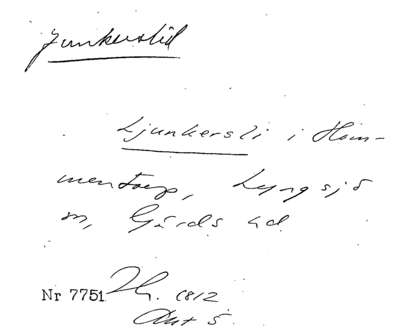 Junkerslid
Ljunkersli i Hom-
mentorp, Lyngsjö
sn, Gärds hd.
Nr 7751 1812
Akt 5.